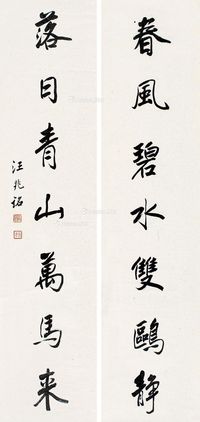 春風碧水雙鷗靜
落日青山萬馬来
汪兆鏞